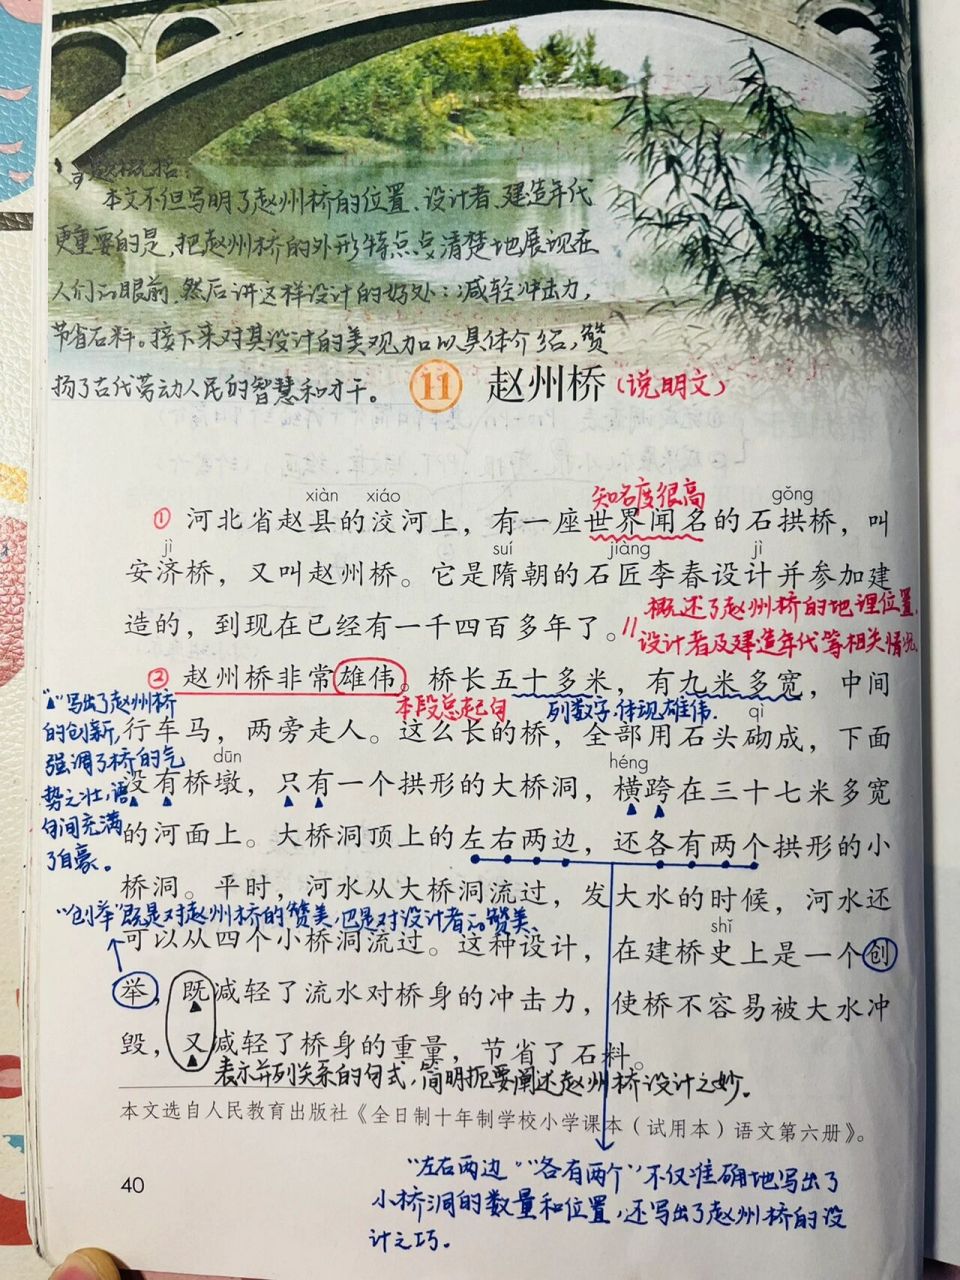 本文不但写明了赵州桥的位置、设计者、建造年代
更重要的是,把赵州桥的外形特点点清楚地展现在
人们的眼前,然后讲这样设计的好处:减轻冲击力,
节省石料。接下来对其设计的美观加以具体介绍,赞
扬了古代劳动人民的智慧和才干。
11 赵州桥(说明文)
xiàn xiáo gǒng
知名度很高
① 河北省赵县的洨河上,有一座世界闻名的石拱桥,叫
jì suí jiàng jì
安济桥,又叫赵州桥。它是隋朝的石匠李春设计并参加建
造的,到现在已经有一千四百多年了。//
概述了赵州桥的地理位置,
设计者及建造年代等相关情况。
② 赵州桥非常雄伟。桥长五十多米,有九米多宽,中间
本段总起句
列数字,体现雄伟.
qì
行车马,两旁走人。这么长的桥,全部用石头砌成,下面
dūn héng
没有桥墩,只有一个拱形的大桥洞,横跨在三十七米多宽
的河面上。大桥洞顶上的左右两边,还各有两个拱形的小
"▲"写出了赵州桥
的创新,
强调了桥的气
势之壮,语
句间充满
了自豪。
桥洞。平时,河水从大桥洞流过,发大水的时候,河水还
"创举"既是对赵州桥的赞美,也是对设计者的赞美.
shǐ
可以从四个小桥洞流过。这种设计,在建桥史上是一个创
举,既减轻了流水对桥身的冲击力,使桥不容易被大水冲
毁,又减轻了桥身的重量,节省了石料。
表示并列关系的句式,简明扼要阐述赵州桥设计之妙.
本文选自人民教育出版社《全日制十年制学校小学课本(试用本)语文第六册》。
40
"左右两边""各有两个"不仅准确地写出了
小桥洞的数量和位置,还写出了赵州桥的设
计之巧.